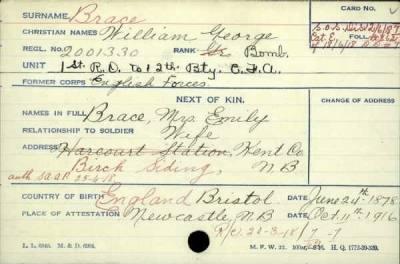 SURNAME Brace
CARD NO.
CHRISTIAN NAMES William George
REGL. NO. 2001330 RANK Gr. Bomb.
FOLL.
UNIT 1st. R.D. to 12th Bty. C.F.A.
FORMER CORPS English Forces
NEXT OF KIN.
CHANGE OF ADDRESS
NAMES IN FULL Brace, Mrs. Emily
RELATIONSHIP TO SOLDIER Wife
ADDRESS Harcourt Station, Kent Co
Birch Siding, N B
auth
COUNTRY OF BIRTH England Bristol DATE June 24th 1878
PLACE OF ATTESTATION Newcastle, N.B DATE Oct. 11th 1916
R/O. 20-3-18
L. L. M. & D.
M. F. W. 22. H. Q. 1772-39-339.